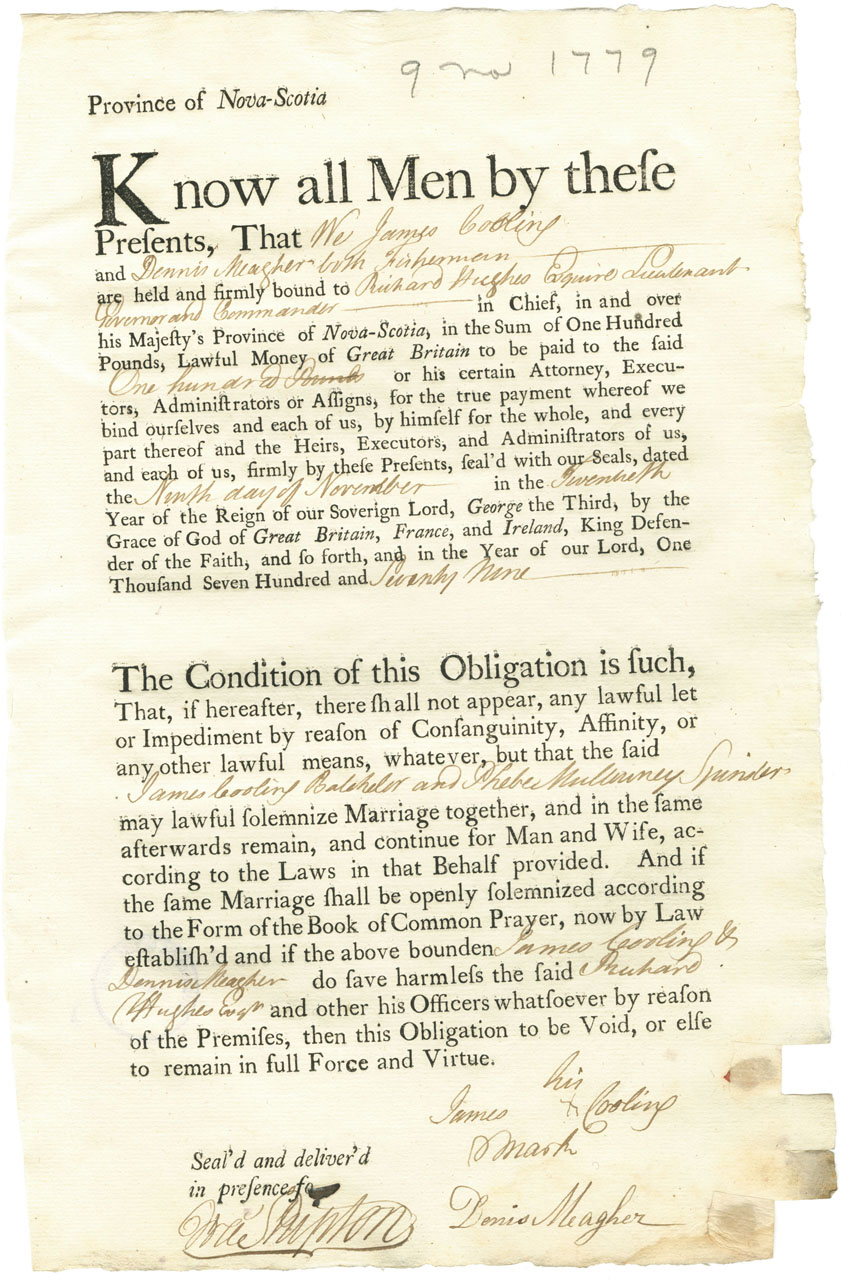 9 no 1779
Province of Nova-Scotia
Know all Men by theſe
Preſents, That We James Cooling
and Dennis Meagher both Fisherman
are held and firmly bound to Richard Hughes Esquire Lieutenant
Governor and Commander in Chief, in and over
his Majeſty's Province of Nova-Scotia, in the Sum of One Hundred
Pounds, Lawful Money of Great Britain to be paid to the ſaid
One hundred Pounds or his certain Attorney, Execu-
tors, Adminiſtrators or Aſſigns, for the true payment whereof we
bind ourſelves and each of us, by himſelf for the whole, and every
part thereof and the Heirs, Executors, and Adminiſtrators of us,
and each of us, firmly by theſe Preſents, ſeal'd with our Seals, dated
the Ninth day of November in the Twentieth
Year of the Reign of our Soverign Lord, George the Third, by the
Grace of God of Great Britain, France, and Ireland, King Defen-
der of the Faith, and ſo forth, and in the Year of our Lord, One
Thouſand Seven Hundred and Seventy Nine
The Condition of this Obligation is ſuch,
That, if hereafter, there ſhall not appear, any lawful let
or Impediment by reaſon of Conſanguinity, Affinity, or
any other lawful means, whatever, but that the ſaid
James Cooling Batchelor and Phebe Mullowney Spinder
may lawful ſolemnize Marriage together, and in the ſame
afterwards remain, and continue for Man and Wife, ac-
cording to the Laws in that Behalf provided. And if
the ſame Marriage ſhall be openly ſolemnized according
to the Form of the Book of Common Prayer, now by Law
eſtabliſh'd and if the above bounden James Cooling &
Dennis Meagher do ſave harmleſs the ſaid Richard
Hughes Esqr and other his Officers whatſoever by reaſon
of the Premiſes, then this Obligation to be Void, or elſe
to remain in full Force and Virtue.
his
James X Cooling
mark
Seal'd and deliver'd
in preſence of
Shipton
Denis Meagher